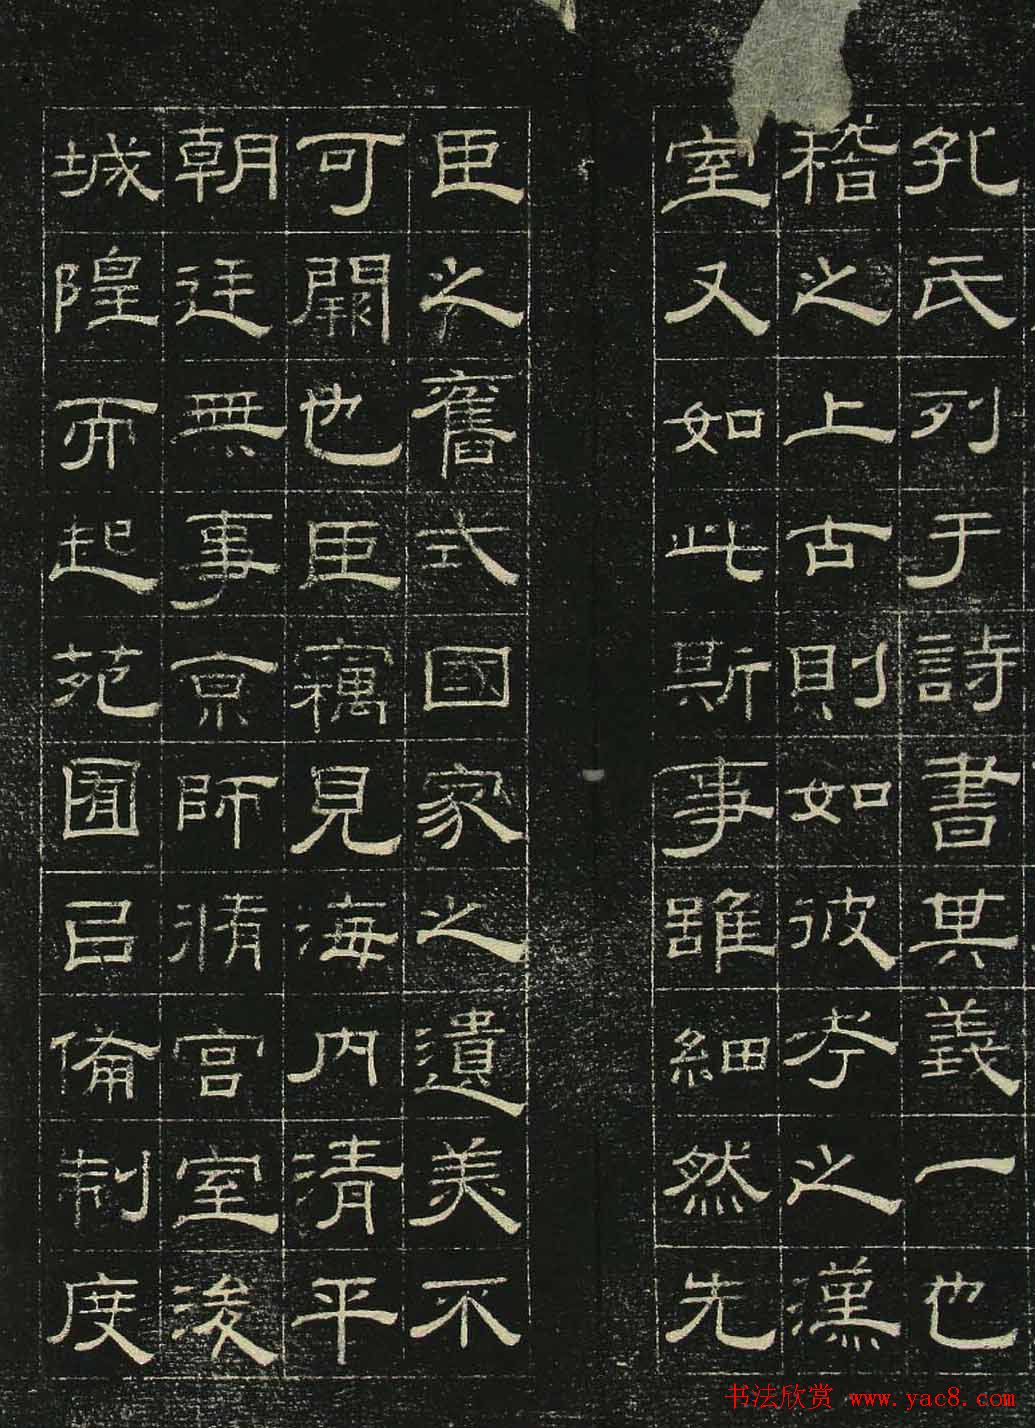 孔氏列于詩書其義一也
稽之上古則如彼考之漢
室又如此斯事雖細然先
臣之舊式國家之遺美不
可闕也臣竊見海內清平
朝廷無事京師脩宮室浚
城隍而起苑囿㠯備制度
书法欣赏 www.yac8.com